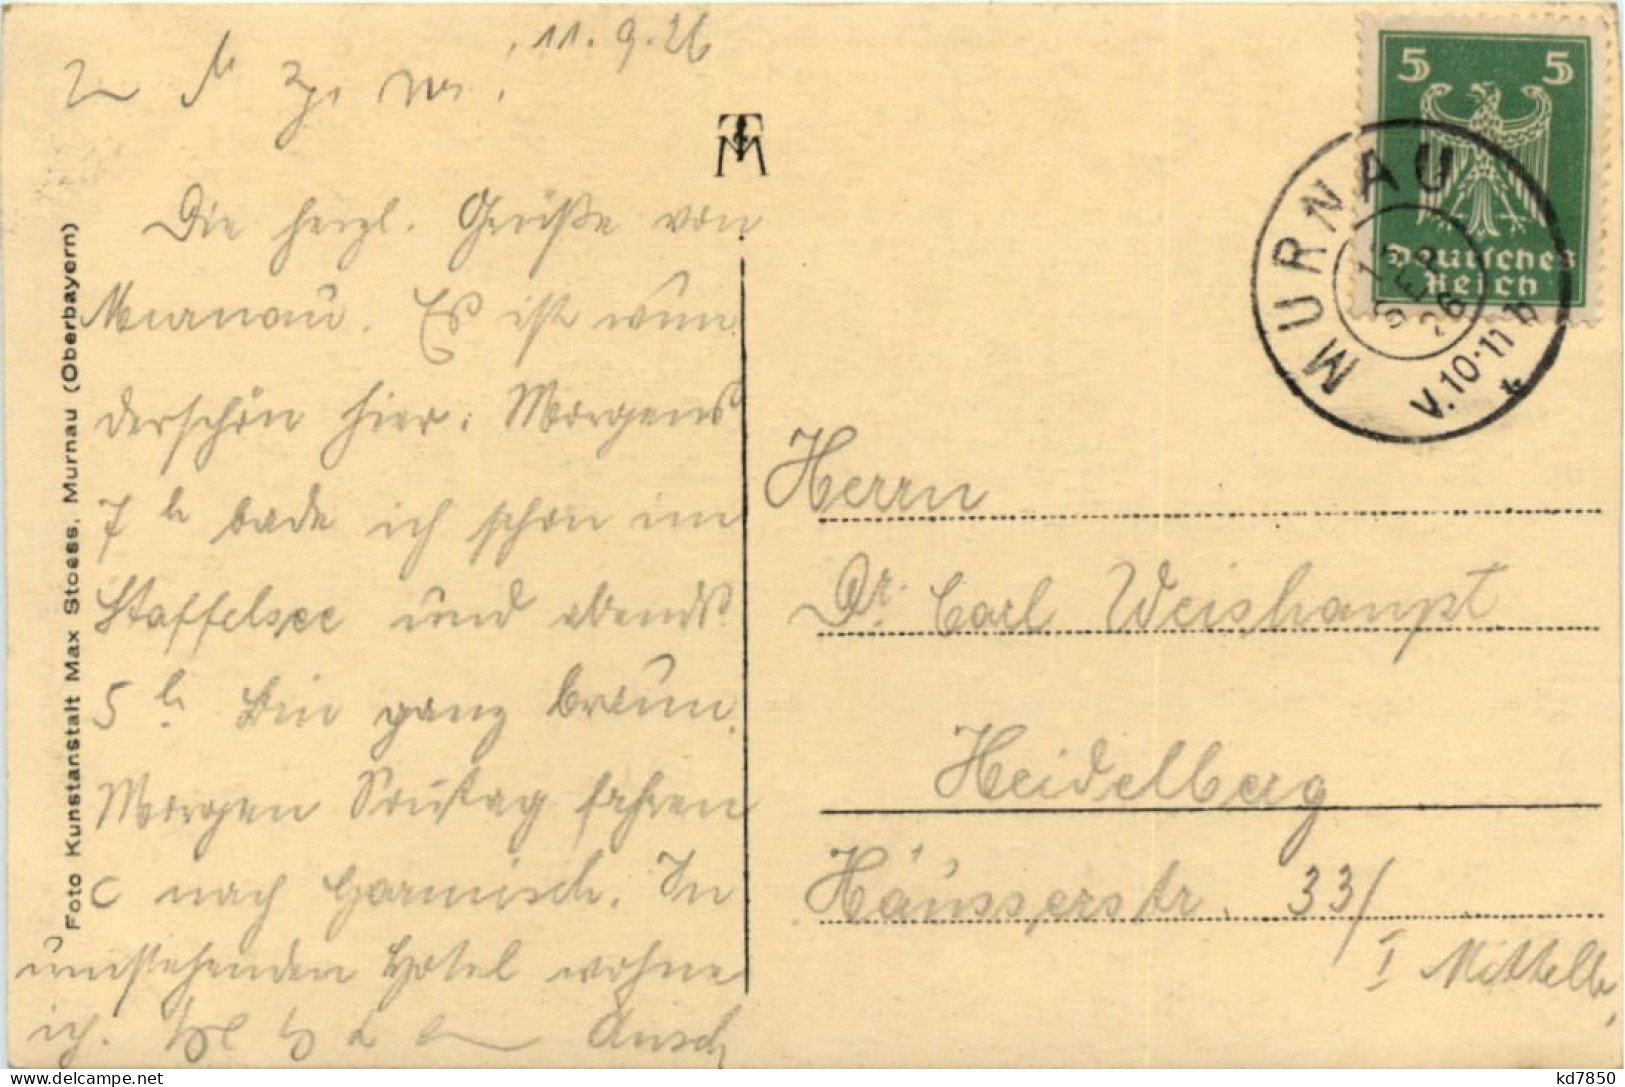 11.9.26
Die herzl. Grüße von
Murnau. Es ist wun
derschön hier. Morgens
7 h bade ich schon im
Staffelsee und abends
5 h. Bin ganz braun.
Morgen Sonntag fahren
nach Garmisch. In
umstehenden Hotel wohne
ich.
Foto Kunstanstalt Max Stoess, Murnau (Oberbayern)
5 5
Deutsches
Reich
MURNAU
SEP
26
V.10-11 h
Herrn
Dr. Carl Weishaupt
Heidelberg
Häusserstr. 33/
I Mittelb
kd7850